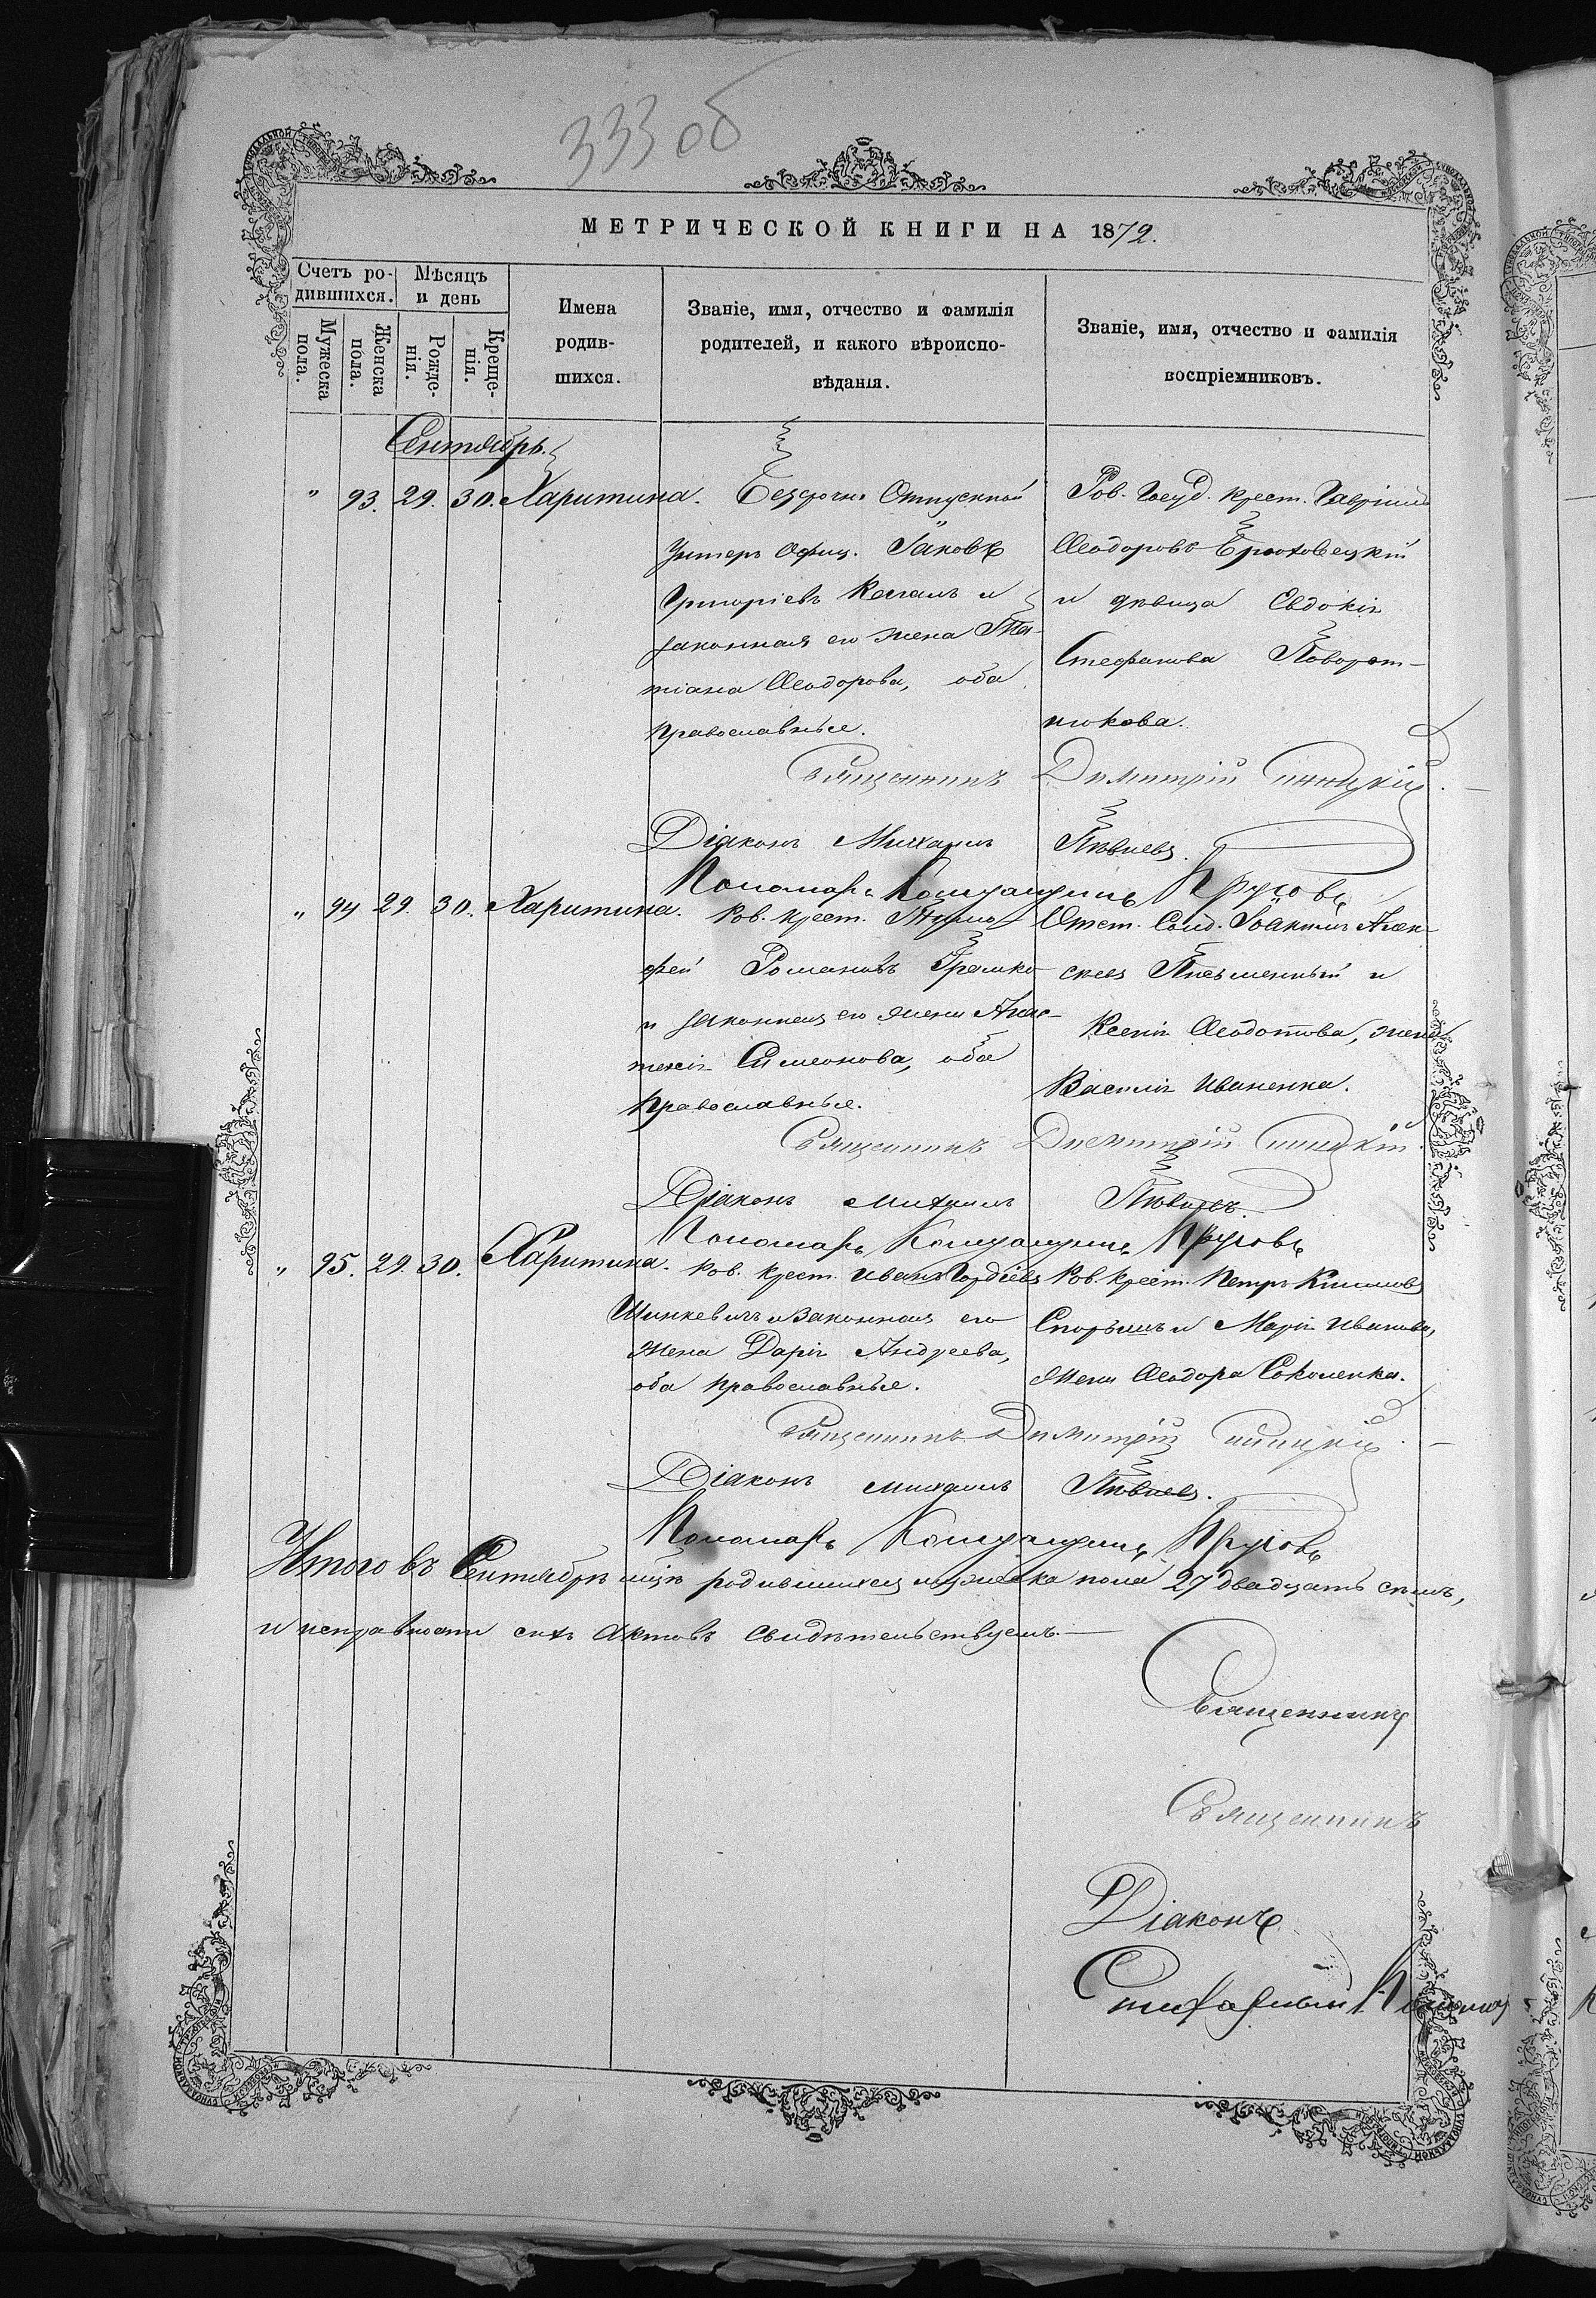 333 об
МЕТРИЧЕСКОЙ КНИГИ НА 1872.
Счетъ ро-
дившихся.
Мѣсяцъ
и день
Мужеска
пола.
Женска
пола.
Рожде-
нія.
Креще-
нія.
Имена
родив-
шихся.
Званіе, имя, отчество и фамилія
родителей, и какого вѣроиспо-
вѣданія.
Званіе, имя, отчество и фамилія
воспріемниковъ.
Сентябрь.
" 93. 29. 30. Харитина. Безсрочно Отпускной
Унтеръ Офиц. Іаковъ
Григоріевъ и
законная его жена Та-
тіана Ѳеодорова, оба
православные.
Ков. Госуд. крест. Гавріилъ
Ѳеодоровъ Брюховецкій
и дѣвица Евдокія
Стефанова Поворот-
нюкова.
Священникъ Димитрій
Діаконъ Михаилъ Пѣвневъ.
Пономарь Прусовъ
" 94 29. 30. Харитина. Ков. крест.
фей Романовъ Грамко
и законная его жена Анас-
тасія Симеонова, оба
православные.
Отст. Солд. Іоакимъ Алек-
сѣевъ Письменный и
Ксенія Ѳеодотова, жена
Василія Иваненка.
Священникъ Димитрій
Діаконъ Михаилъ Пѣвневъ.
Пономарь Прусовъ
" 95. 29. 30. Харитина. Ков. крест. Иванъ Гордіевъ
Шинкевичъ и законная его
жена Дарія Андреева,
оба православные.
Ков. крест. Петръ Климовъ
и Марія Иванова,
жена Ѳеодора Соколенка.
Священникъ Димитрій
Діаконъ Михаилъ Пѣвневъ.
Пономарь Прусовъ
Итого въ Сентябрѣ м‍цѣ родившихся мужеска пола 27 двадцать семь,
и исправности сихъ актовъ свидѣтельствуемъ.
Священникъ
Священникъ
Діаконъ